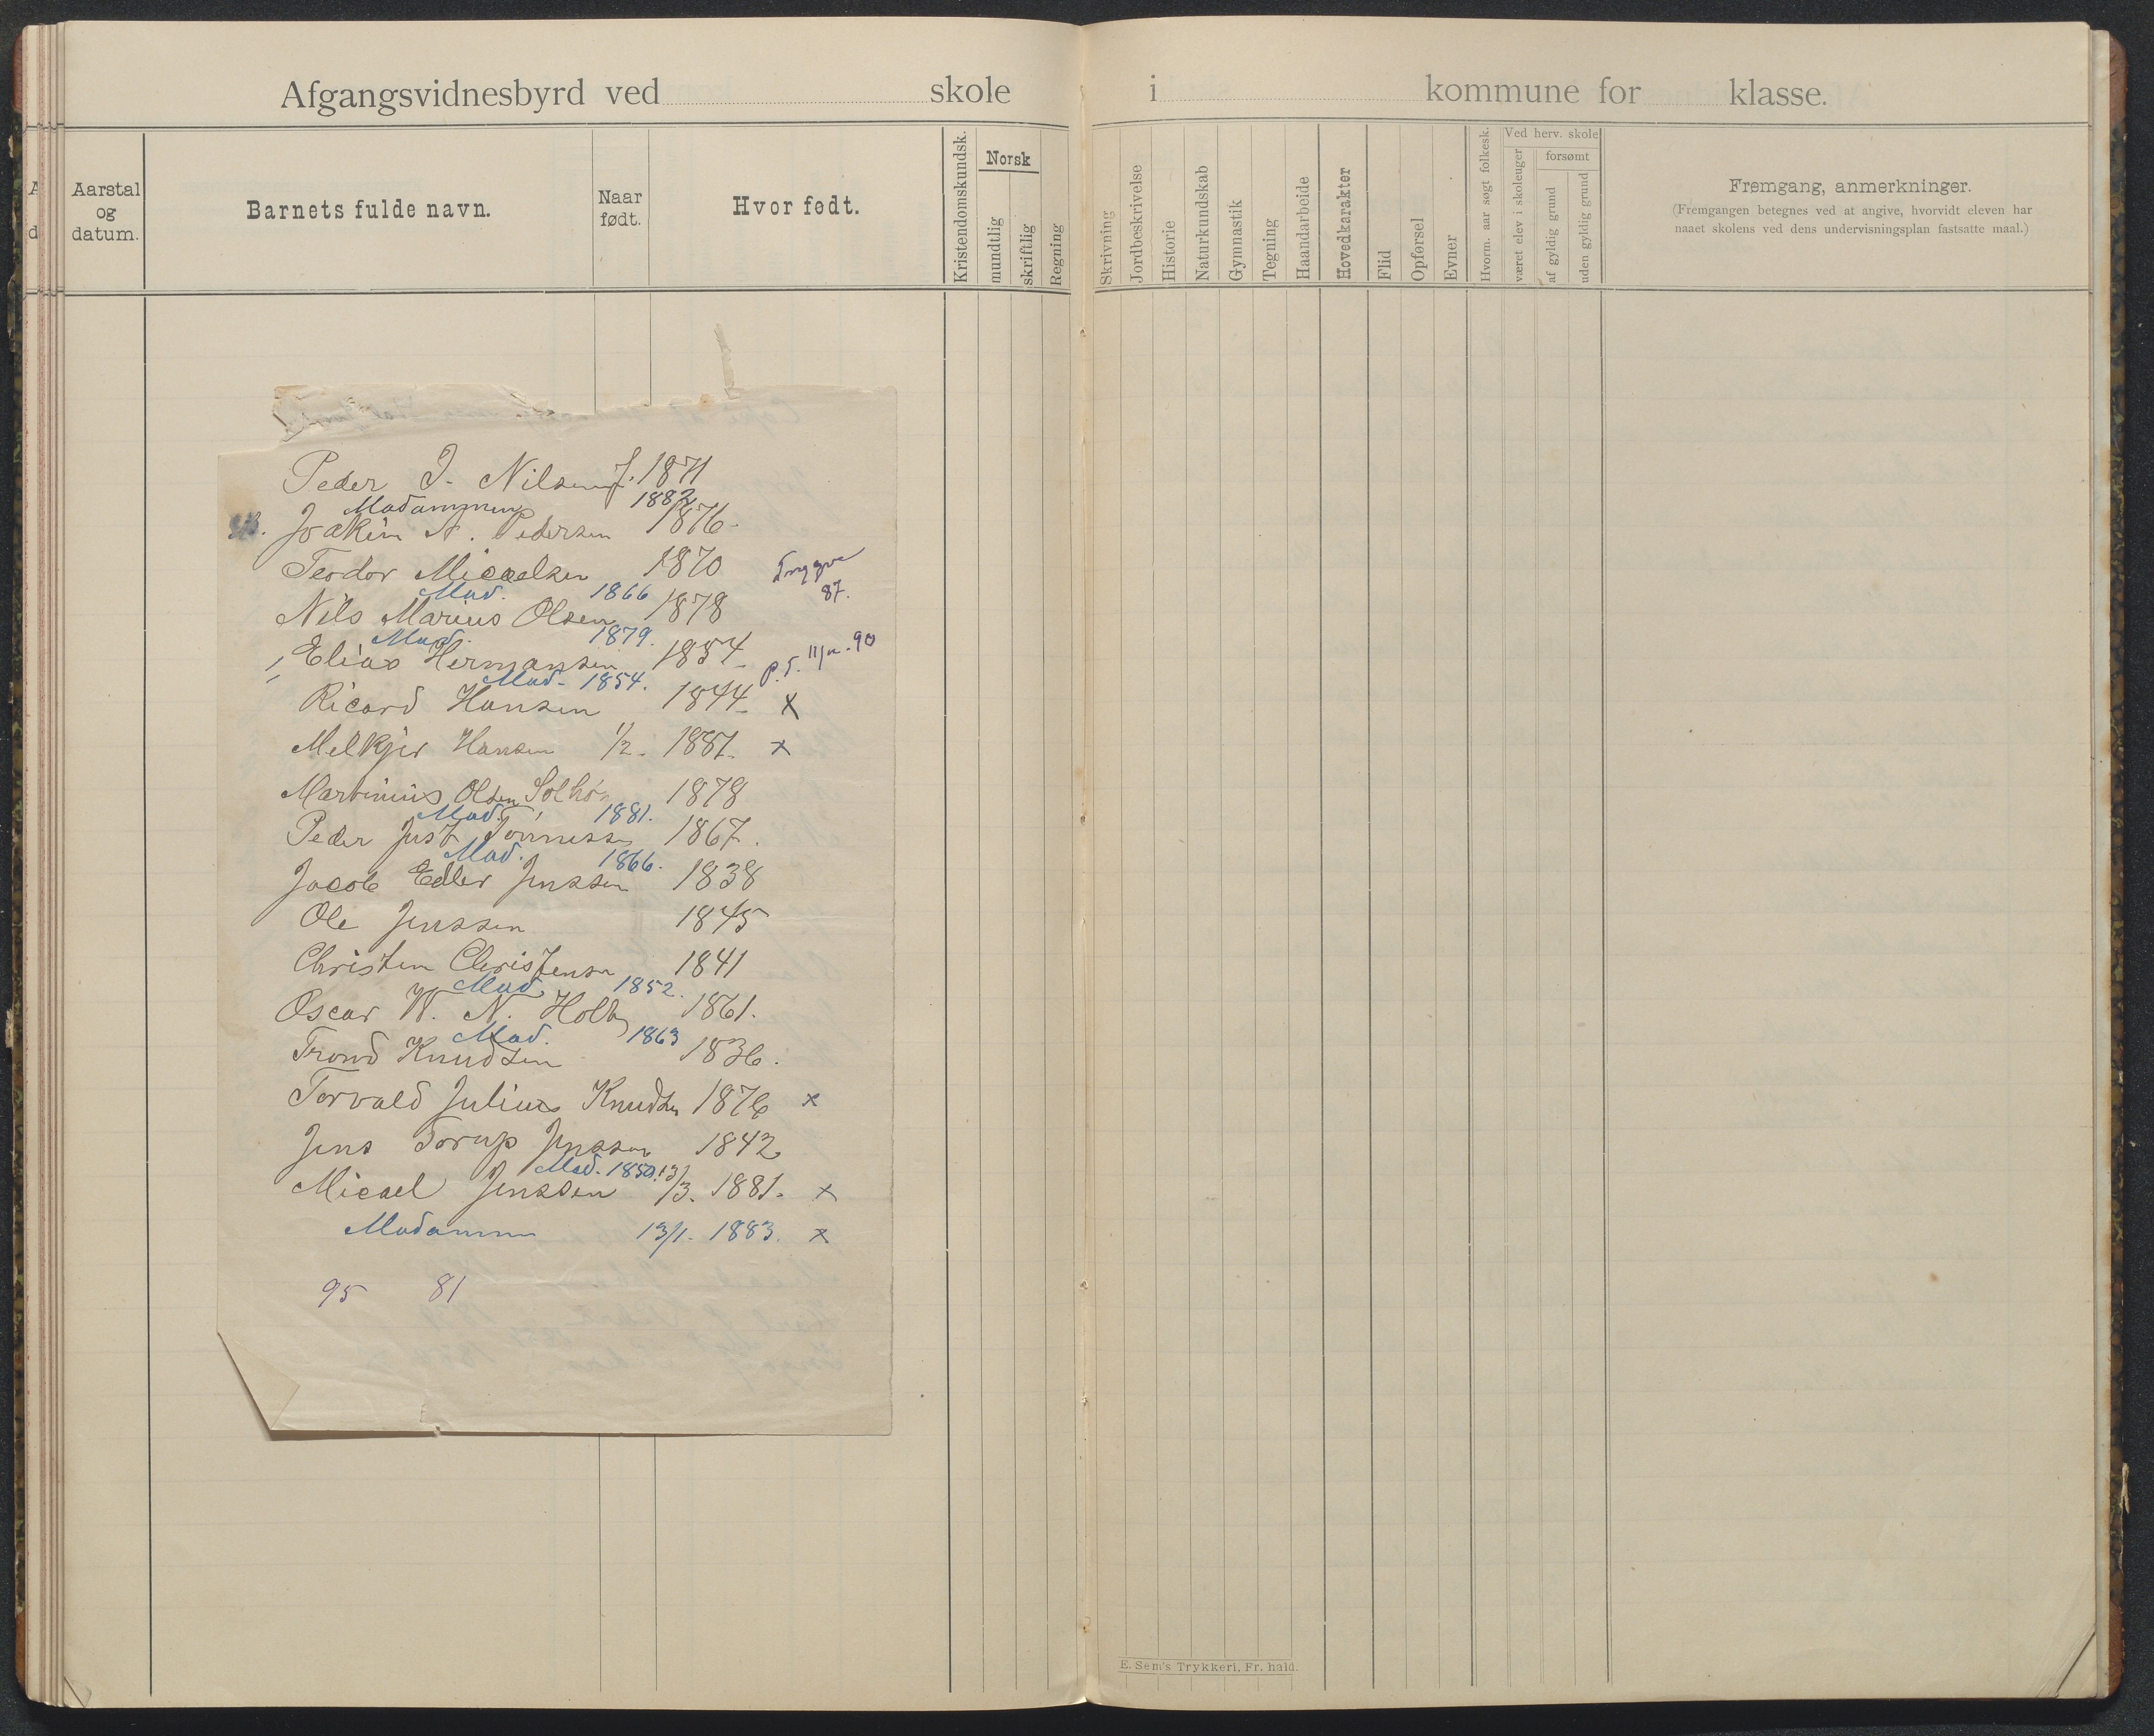 Afgangsvidnesbyrd ved skole i kommune for klasse.
Aarstal og datum.
Barnets fulde navn.
Naar født.
Hvor født.
Kristendomskundsk.
Norsk
mundtlig
skriftlig
Regning
Skrivning
Jordbeskrivelse
Historie
Naturkundskab
Gymnastik
Tegning
Haandarbeide
Hovedkarakter
Flid
Opførsel
Evner
Hvorm. aar søgt folkesk.
Ved herv. skole
været elev i skoleuger
forsømt
af gyldig grund
uden gyldig grund
Fremgang, anmerkninger.
(Fremgangen betegnes ved at angive, hvorvidt eleven har
naaet skolens ved dens undervisningsplan fastsatte maal.)
Peder J. Nilsen 1871
Madammen 1882
Joakim A. Pedersen 1876
Teodor Micaelsen 1870
Trygve
87.
Mad. 1866
Nils Marius Olsen 1878
Mad. 1879.
Elias Hermansen 1854
11/11-90
Mad. 1854.
Ricard Hansen 1844 x
Melkjer Hansen 1/2. 1887. x
Martinius Olsen Solhø 1878
Mad. 1881.
Peder Just Tönnessen 1867.
Mad. 1866.
Jacob Edler Jenssen 1838
Ole Jenssen 1845
Christen Christensen 1841
Mad. 1852.
Oscar W. N. Holby 1861.
Mad. 1863
Trond Knudsen 1836.
Torvald Julius Knudsen 1876 x
Jens Torup Jenssen 1842
Mad. 1850.
Micael Jenssen 13/3. 1881. x
Madammen 13/1. 1883. x
95 81
E. Sem's Trykkeri, Fr. hald.